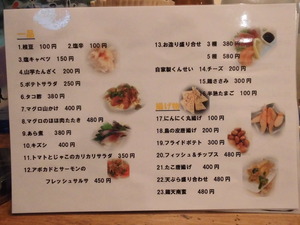 一品
1.枝豆 100円 2.塩辛 100円
3.塩キャベツ 150円
4.山芋たんざく 200円
5.ポテトサラダ 250円
6.タコ酢 380円
7.マグロ山かけ 400円
8.マグロのほほ肉たたき 680円
9.あら煮 380円
10.キズシ 400円
11.トマトとじゃこのカリカリサラダ 380円
12.アボカドとサーモンの
フレッシュサルサ 450円
13.お造り盛り合せ 3種 380円
5種 580円
自家製くんせい 14.チーズ 200円
15.鶏ささみ 300円
16.半熟たまご 100円
揚げ物
17.にんにく丸揚げ 100円
18.鳥の皮唐揚げ 200円
19.フライドポテト 300円
20.フィッシュ&チップス 480円
21.たこ唐揚げ 400円
22.天ぷら盛り合わせ 480円
23.鶏天南蛮 480円